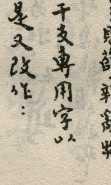 干支專用字以
是又改作：